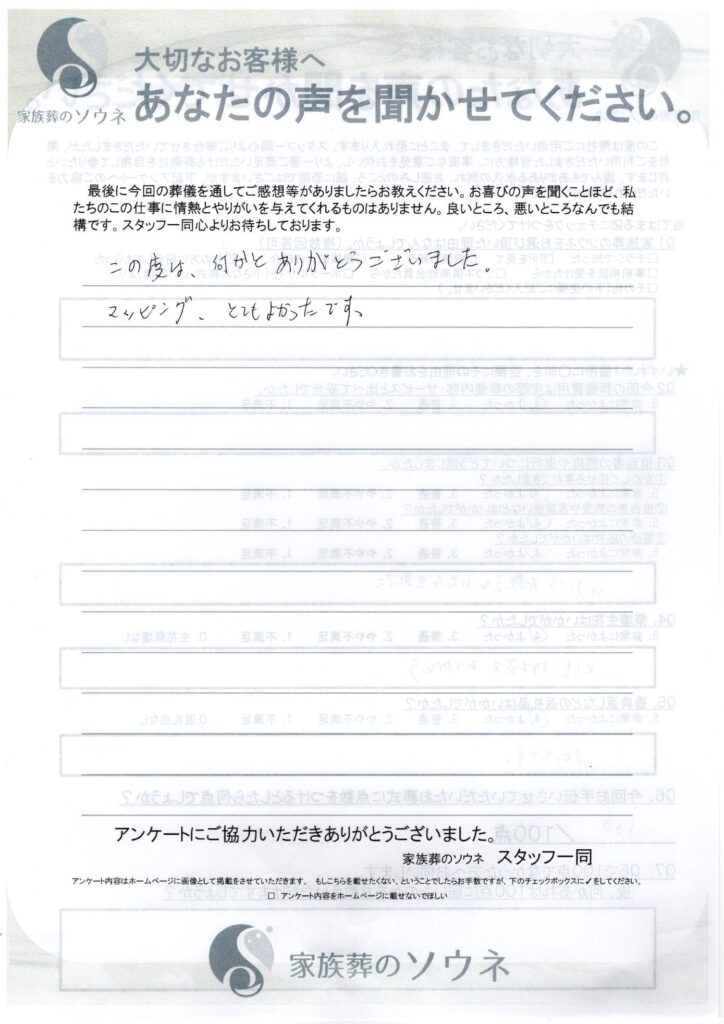 大切なお客様へ
家族葬のソウネ
あなたの声を聞かせてください。
最後に今回の葬儀を通してご感想等がありましたらお教えください。お喜びの声を聞くことほど、私
たちのこの仕事に情熱とやりがいを与えてくれるものはありません。良いところ、悪いところなんでも結
構です。スタッフ一同心よりお待ちしております。
この度は、何かとありがとうございました。
マッピング、とてもよかったです。
アンケートにご協力いただきありがとうございました。
家族葬のソウネ スタッフ一同
アンケート内容はホームページに画像として掲載をさせていただきます。 もしこちらを載せたくない、ということでしたらお手数ですが、下のチェックボックスに✓をしてください。
□ アンケート内容をホームページに載せないでほしい
家族葬のソウネ